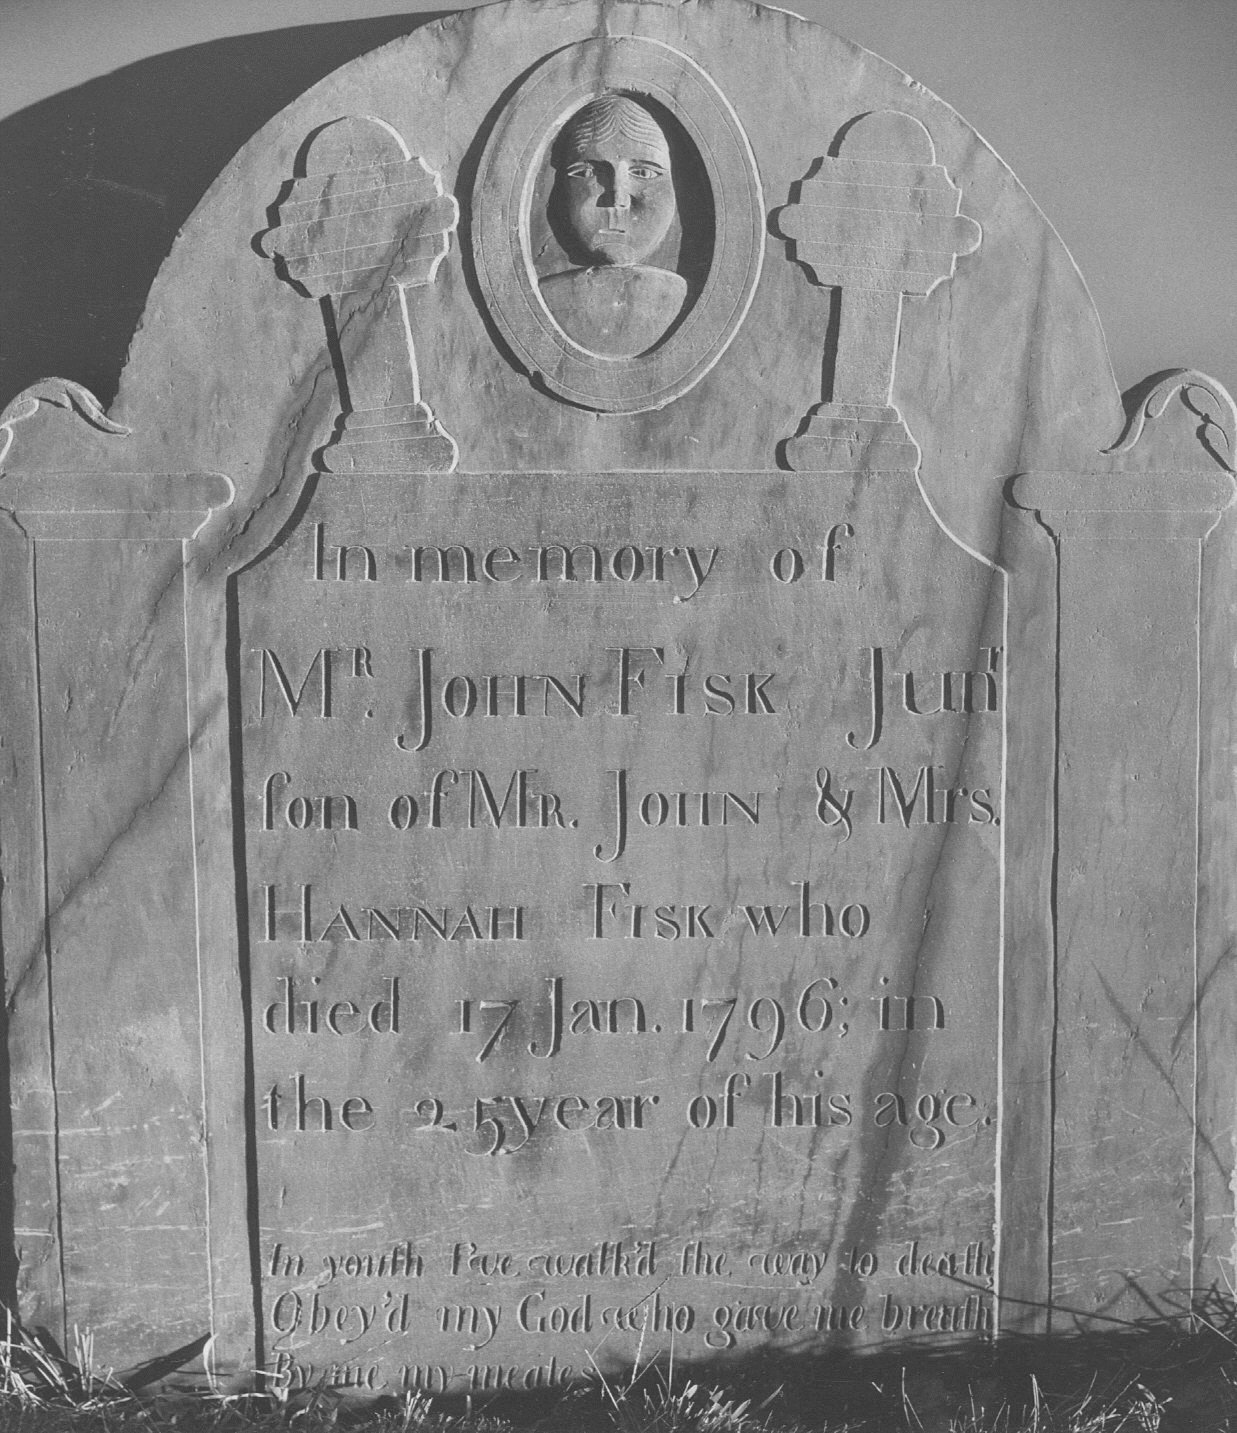 In memory of
Mʀ. John Fisk Junr
ſon of Mr. John & Mrs.
Hannah Fisk who
died 17 Jan. 1796; in
the 25 year of his age.
In youth I've walk'd the way to death,
Obey'd my God who gave me breath
By me my